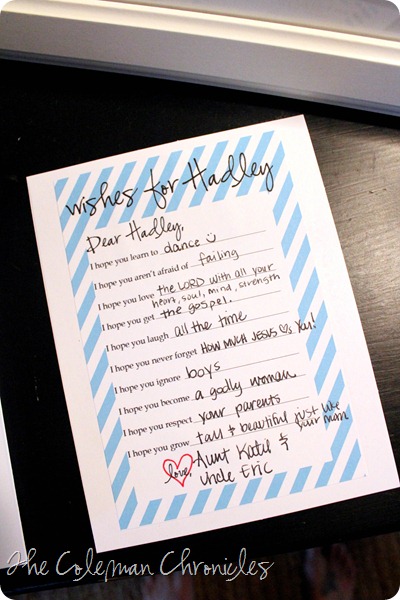 wishes for Hadley
Dear Hadley,
I hope you learn to dance
I hope you aren't afraid of failing
I hope you love the LORD with all your
heart, soul, mind, strength
I hope you get the gospel.
I hope you laugh all the time
I hope you never forget HOW MUCH JESUS ♡s You!
I hope you ignore boys
I hope you become a godly woman
I hope you respect your parents
I hope you grow tall & beautiful just like
your mom
love, Aunt Katie &
Uncle Eric
The Coleman Chronicles